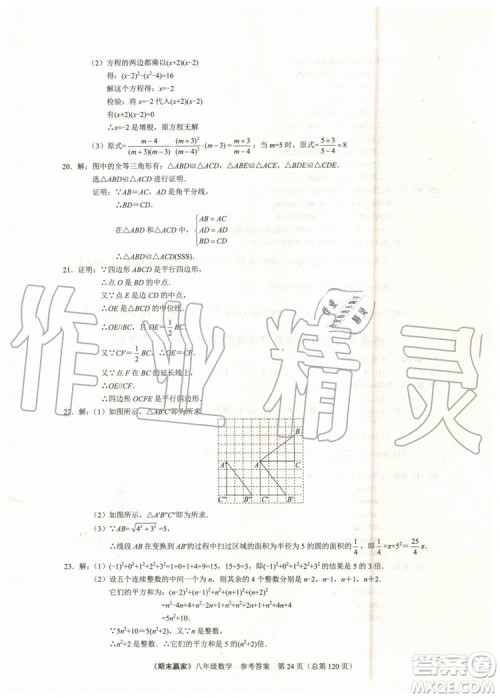 （2）方程的两边都乘以(x+2)(x-2)
得：(x-2)²-(x+2)(x-2)=16
解这个方程得：x=-2
检验：将 x=-2 代入(x+2)(x-2)
有(x+2)(x-2)=0
∴x=-2 是增根，原方程无解
（3）原式=(m-4)/((m+3)(m-3))·(m+3)²/(m-4)·(m-3)=(m+3)/(5-m)；当 m=5 时，原式=(5+3)/(5-4)=8
20. 解：图中的全等三角形有：△ABD≌△ACD
选△ABD≌△ACD 证明.
证明：∵AB=AC，AD 是角平分线，
∴BD=CD.
在△ABD 和△ACD 中，{AB=AC AD=AD BD=CD
∴△ABD≌△ACD(SSS).
21. 证明：∵四边形 ABCD 是平行四边形，
∴点 O 是 BD 的中点.
又∵点 E 是边 CD 的中点，
∴OE 是△BCD 的中位线，
∴OE∥BC，且 OE=1/2 BC.
又∵CF=1/2 BC，∴OE=CF.
又∵点 F 在 BC 的延长线上，
∴OE∥CF，
∴四边形 OCFE 是平行四边形.
22. 解：（1）如图所示，△AB′C′即为所求.
B
A″ A C
B″ C″ B′
（2）如图所示，△A′B″C″即为所求.
（3）∵AB=√(4²+3²)=5，
∴线段 AB 在变换到 AB′的过程中扫过区域的面积为半径为 5 的圆的面积的1/4，即1/4×π×5²=25/4π.
23. 解：（1）(-1)²+0²+1²+2²+3²=1+0+1+4+9=15，15÷5=3，即结果是 5 的 3 倍；
（2）设五个连续整数的中间一个为 n，则其余的 4 个整数分别是 n-2，n-1，n+1，n+2，
它们的平方和为：(n-2)²+(n-1)²+n²+(n+1)²+(n+2)²
=n²-4n+4+n²-2n+1+n²+n²+2n+1+n²+4n+4
=5n²+10.
∵5n²+10=5(n²+2)，
又 n 是整数，
∴n²+2 是整数，
∴五个连续整数的平方和是 5 的倍数.
《期末赢家》八年级数学 参考答案 第 24 页（总第 120 页）
作业精灵